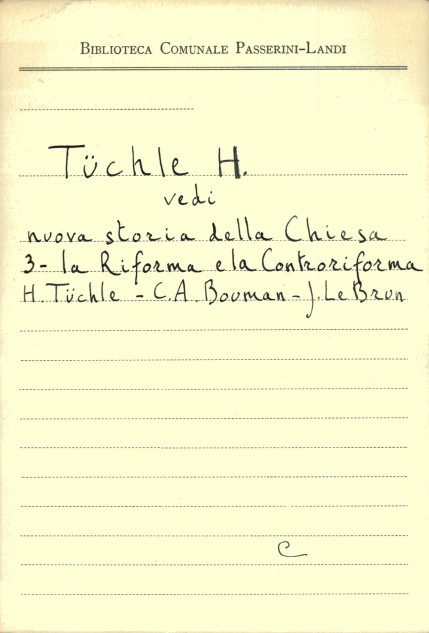 Biblioteca Comunale Passerini-Landi
Tüchle H.
vedi
nuova storia della Chiesa
3- la Riforma e la Controriforma
H. Tüchle - C.A. Bouman - J. Le Brun
C